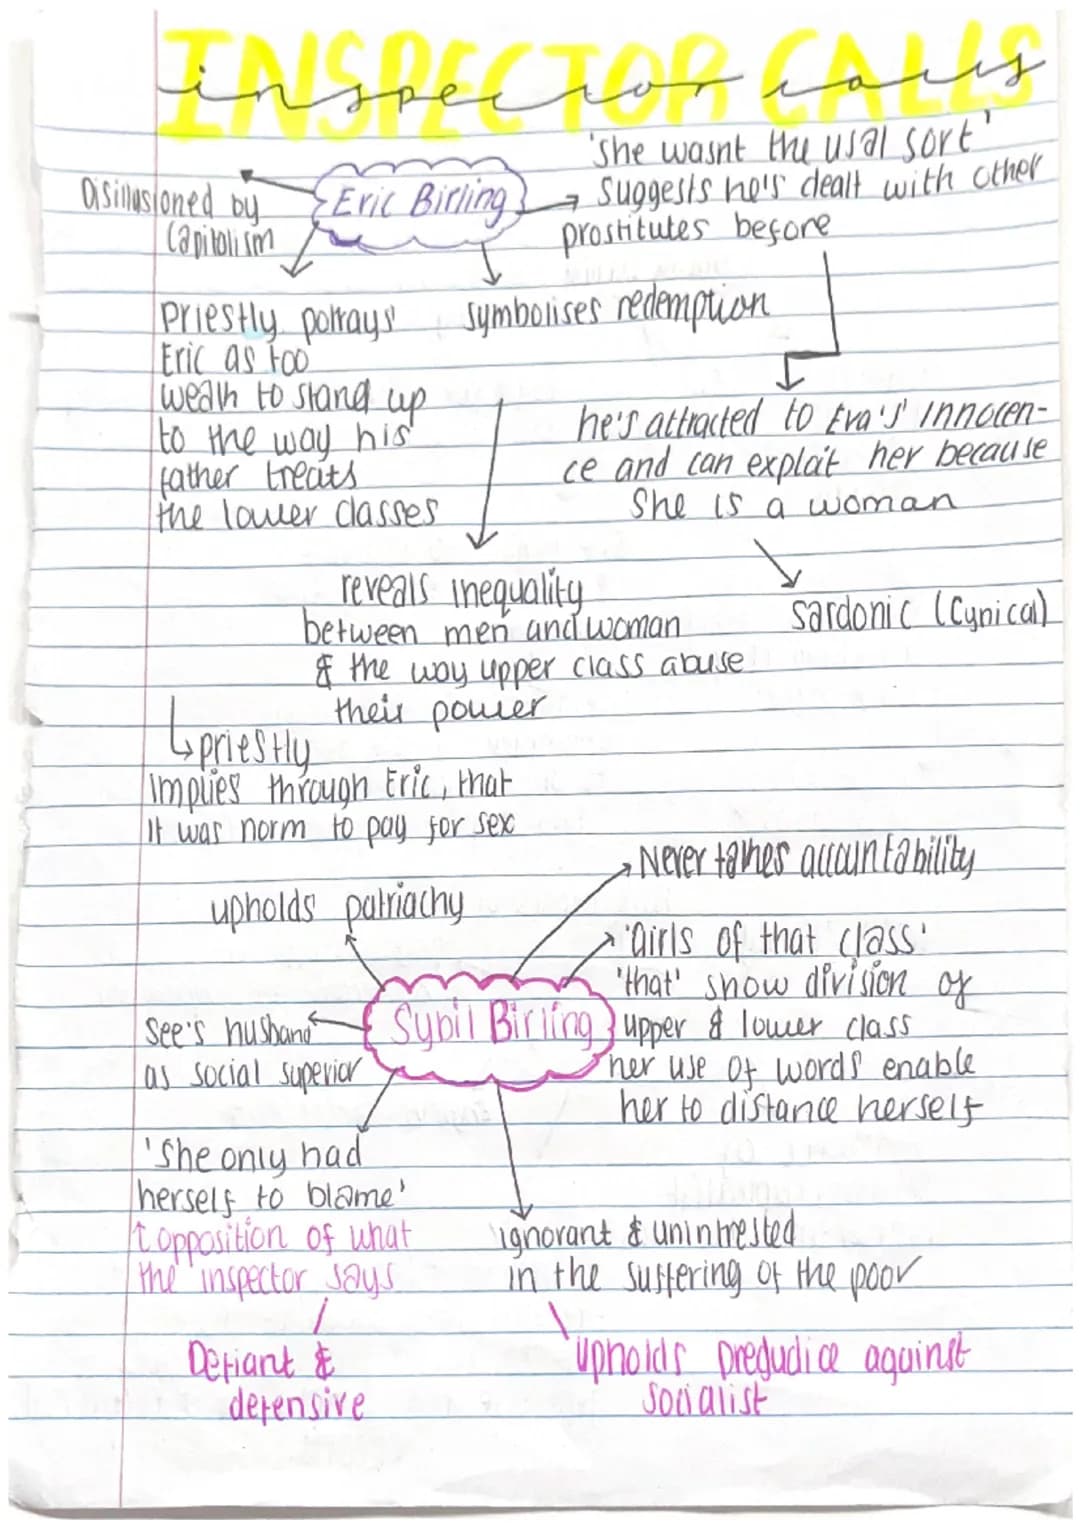 INSPECTOR CALLS
inspector calls
Eric Birling
Disillusioned by
Capitolism
'she wasnt the usal sort'
suggests he's dealt with other
prostitutes before
he's attracted to Eva's' Innocen-
ce and can explait her because
She is a woman
sardonic (Cynical)
symbolises redemption
Priestly potrays'
Eric as too
weak to stand up
to the way his
father treats
the lower classes
reveals inequality
between men and woman
& the way upper class abuse
their power
priestly
Implies through Eric, that
it was norm to pay for sex
Sybil Birling
upholds patriachy
Never takes accountability
'Girls of that class'
'that' show division of
upper & lower class
her use of words enable
her to distance herself
see's husband
as social superior
'She only had
herself to blame'
↑ opposition of what
the inspector says
Defiant &
defensive
ignorant & unintrested
in the suffering of the poor
upholds predudice against
socialist